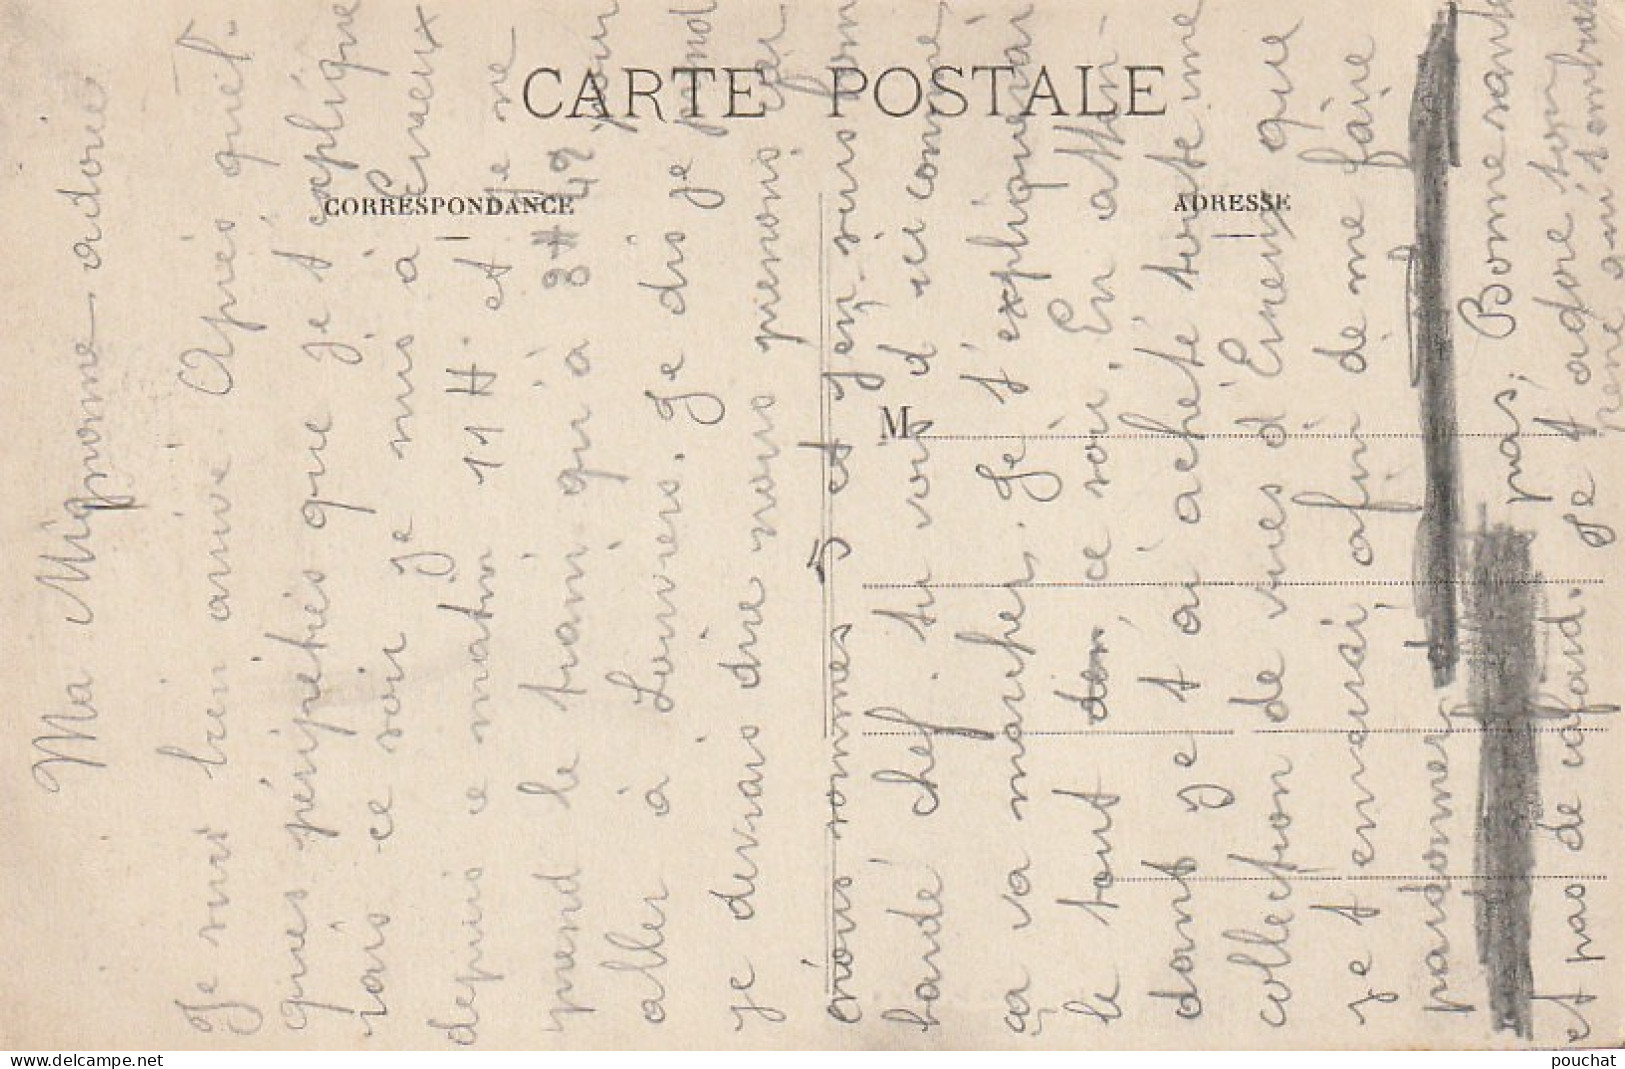 CARTE POSTALE
CORRESPONDANCE
ADRESSE
M
Ma Mignonne adorée
Je suis bien arrivé. Après quel-
ques péripéties que je t'explique
rais ce soir je suis à Ermeux
depuis ce matin 11H et je ne
prend le train qu'à 3H 49 pour
aller à Louvres. Je dis je prend
je devrais dire nous prenons car
nous sommes 5 et j'en suis bom
bardé chef. tu vois d'ici comme
ça va marcher. Je t'expliquerai
le tout ce soir. En atten-
dant je t'ai acheté toute une
collection de vues d'Ermeux que
je t'enverrai, afin de me faire
pardonner
pas, Bonne santé
et pas de cafard. Je t'adore ton
René qui t'embrasse
pouchat